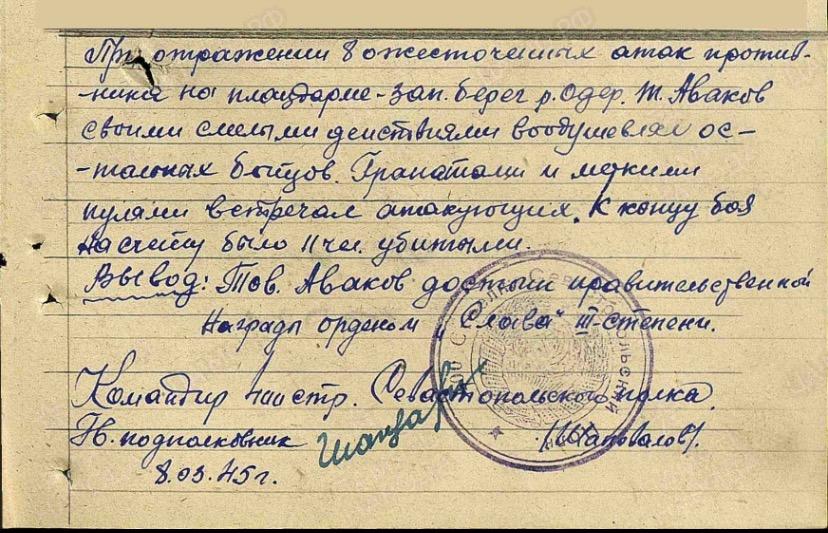 При отражении 8 ожесточенных атак против-
-ника на плацдарме - зап. берег р. Одер. т. Аваков
своими смелыми действиями воодушевлял ос-
-тальных бойцов. Гранатами и меткими
пулями встречал атакующих. К концу боя
на счету было 11 чел. убитыми.
Вывод: Тов. Аваков достоин правительственной
награды орденом "Слава" III-степени.
Командир стр. Севастопольского полка
подполковник /Шаповалов/.
8.03.45г.